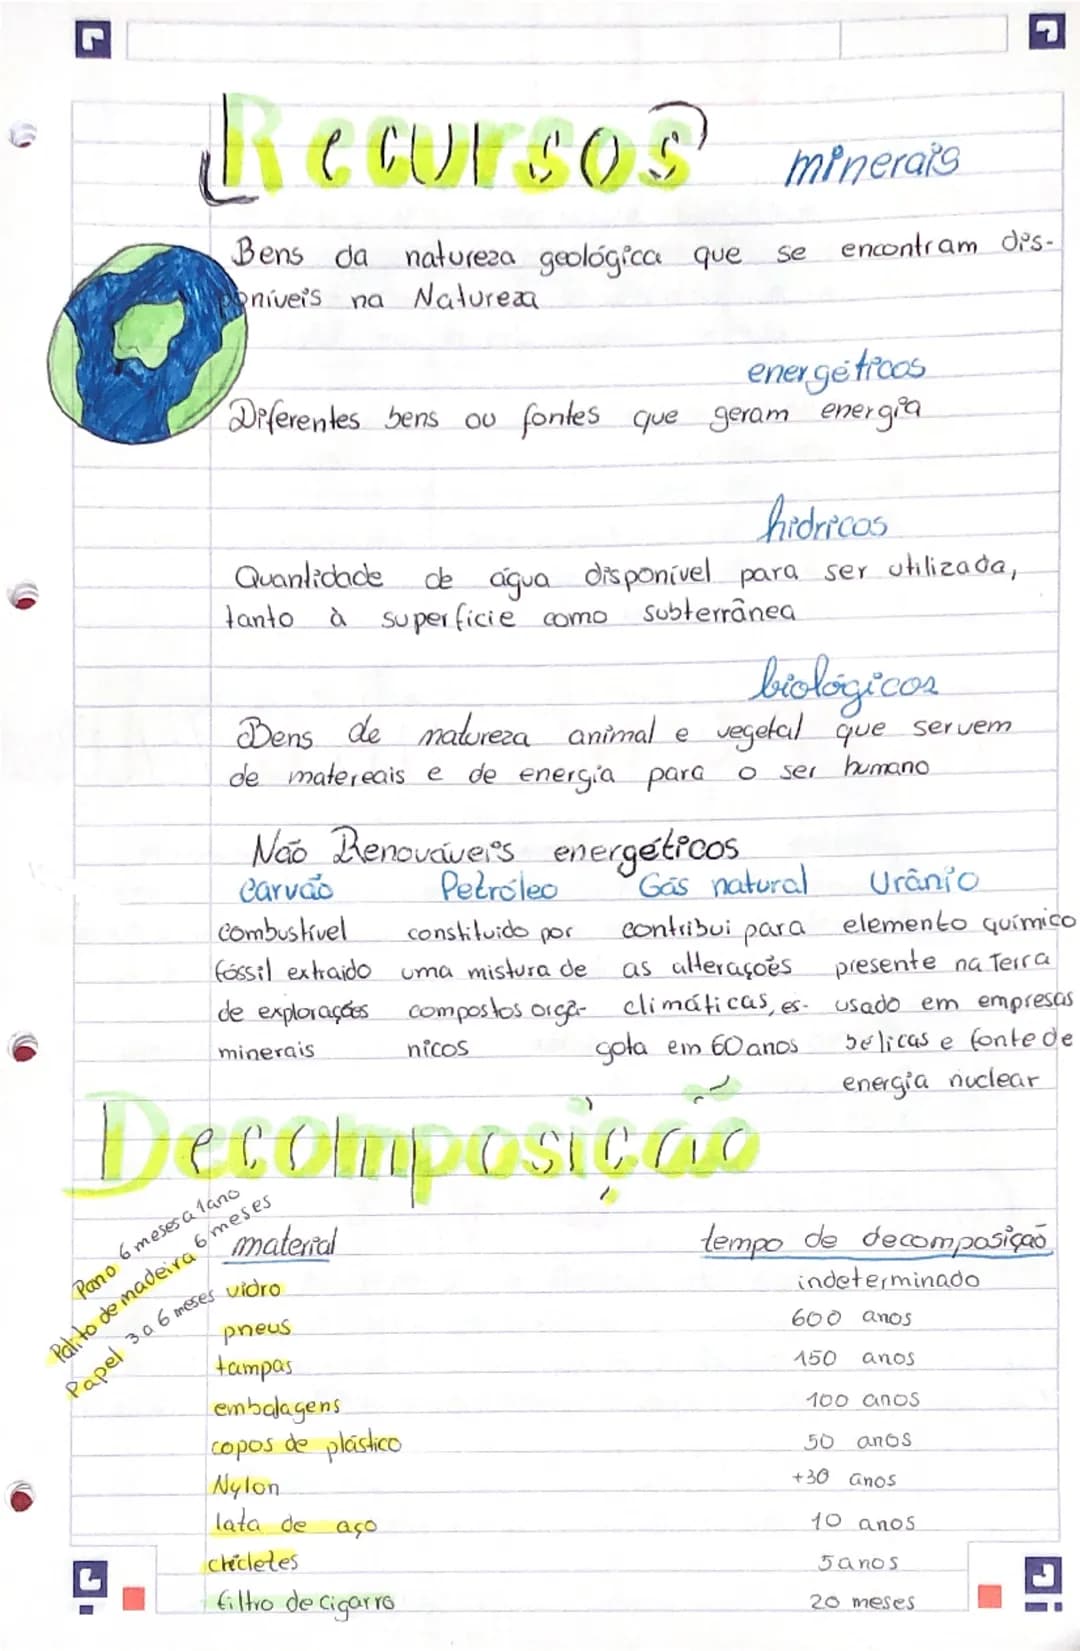 Recursos minerais
Bens da natureza geológica que se encontram dis-
poníveis na Natureza
energéticos
Diferentes bens ou fontes que geram energia
hídricos
Quantidade de água disponível para ser utilizada,
tanto à superfície como subterrânea
biológicos
Bens de natureza animal e vegetal que servem
de matereais e de energia para o ser humano
Não Renováveis energéticos
Carvão Petróleo Gás natural Urânio
combustível constituido por contribui para elemento químico
fóssil extraido uma mistura de as alterações presente na Terra
de explorações compostos orgâ- climáticas, es- usado em empresas
minerais nicos gota em 60 anos bélicas e fonte de
energia nuclear
Decomposição
Pano 6 meses a 1 ano
Palito de madeira 6 meses
Papel 3 a 6 meses
material tempo de decomposição
vidro indeterminado
pneus 600 anos
tampas 150 anos
embalagens 100 anos
copos de plástico 50 anos
Nylon +30 anos
lata de aço 10 anos
chicletes 5 anos
filtro de cigarro 20 meses